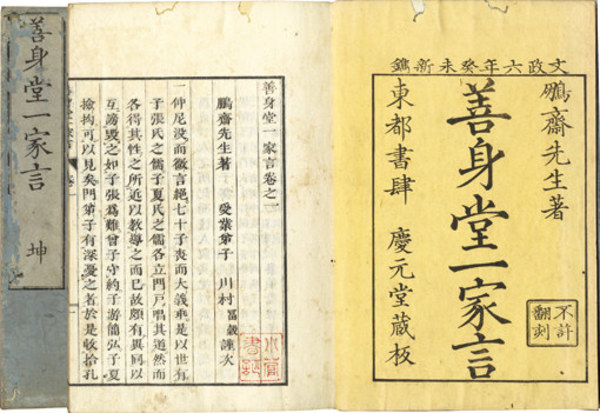 文政六年癸未新鐫
鵬齋先生著
善身堂一家言
不許
翻刻
東都書肆 慶元堂蔵板
善身堂一家言卷之一
鵬齋先生著 受業弟子 川村 謹次
一仲尼没而微言絶七十子喪而大義乖是以世有
子張氏之儒子夏氏之儒各立門戸唱其道然而
各得其性之所近以教導之而已故頗有異同以
互謗毀之如子張爲難曾子守約子游簡弘子夏
撿拘可以見矣門第子有深憂之者於是收拾孔
善身堂一家言 坤